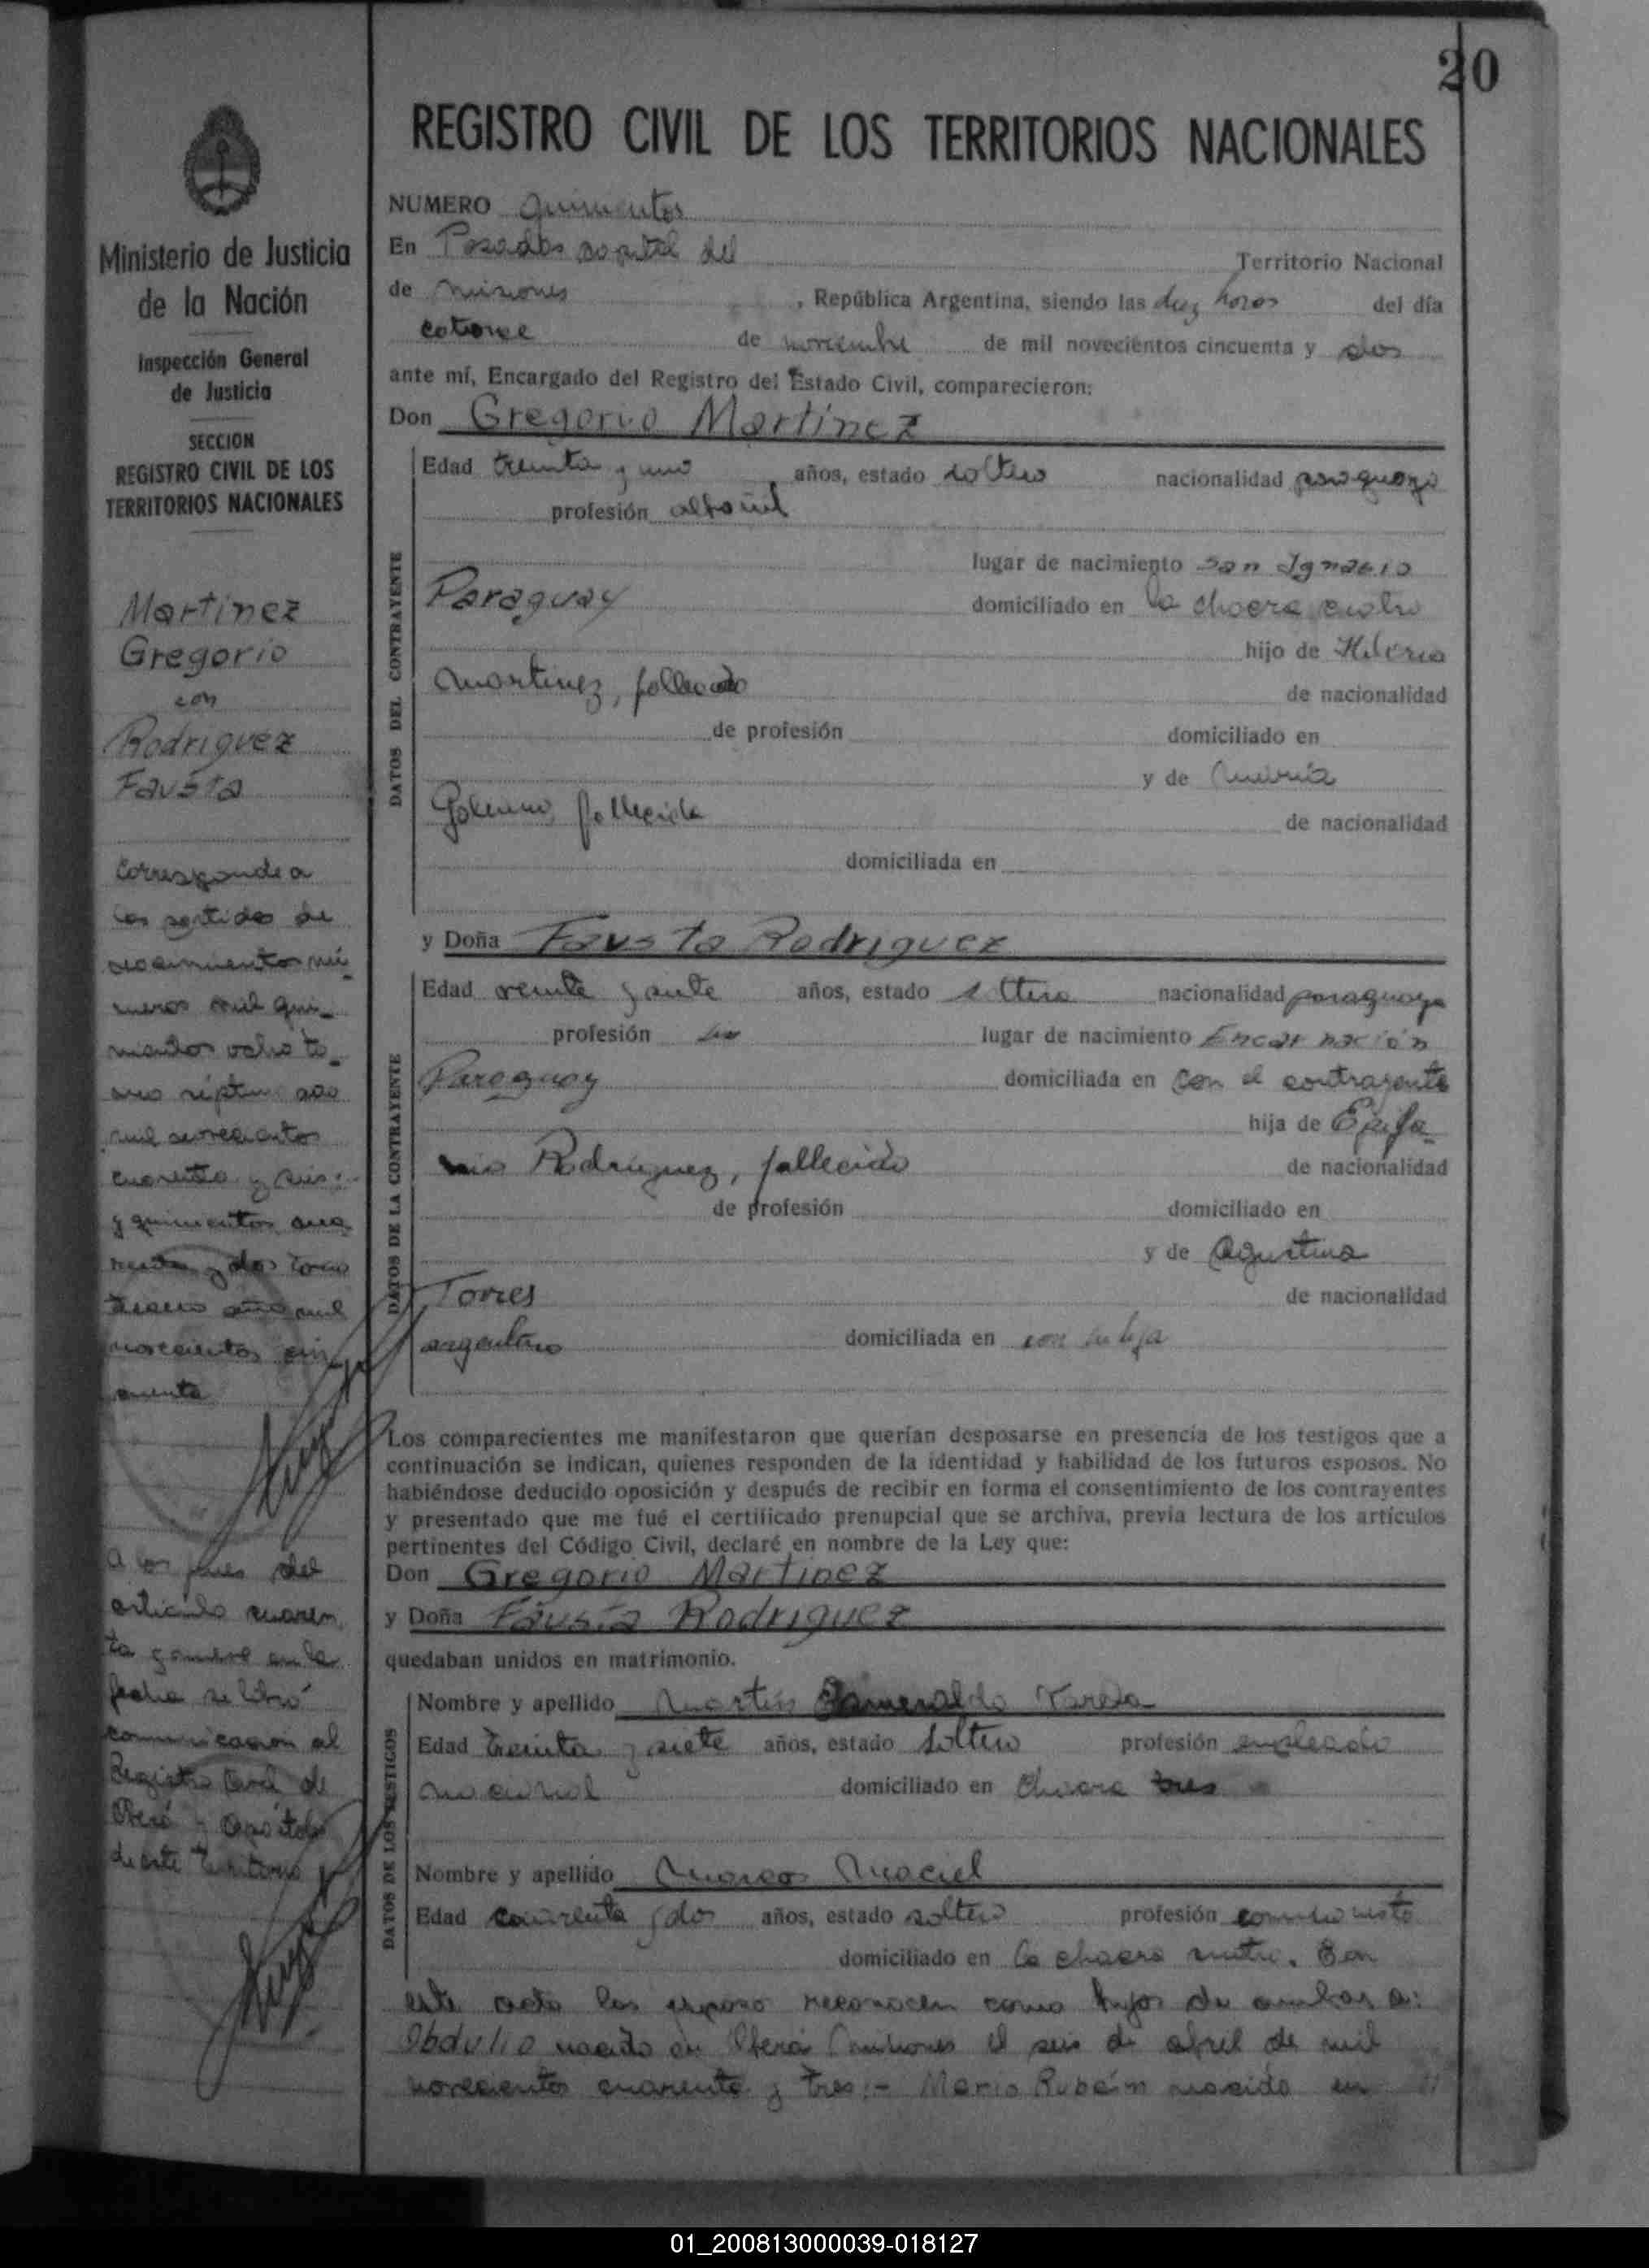 20
REGISTRO CIVIL DE LOS TERRITORIOS NACIONALES
Ministerio de Justicia
de la Nación
Inspección General
de Justicia
SECCION
REGISTRO CIVIL DE LOS
TERRITORIOS NACIONALES
Martinez
Gregorio
con
Rodriguez
Fausta
corresponde a
las partidas de
mil novecientos
cuarenta y seis:-
y quinientos cua
renta y dos tomo
tercero año mil
novecientos cin
cuenta
A los fines del
artículo cuaren
ta y nueve en la
fecha se libró
comunicación al
Registro Civil de
Oberá y Apóstoles
de este Territorio
NUMERO quinientos
En Posadas capital del Territorio Nacional
de Misiones, República Argentina, siendo las diez horas del día
catorce de noviembre de mil novecientos cincuenta y dos
ante mí, Encargado del Registro del Estado Civil, comparecieron:
Don Gregorio Martinez
DATOS DEL CONTRAYENTE
Edad treinta y uno años, estado soltero nacionalidad paraguayo
profesión albañil
lugar de nacimiento San Ignacio
Paraguay domiciliado en la chacra cuatro
hijo de Hilario
Martinez, fallecido de nacionalidad
de profesión domiciliado en
y de María
fallecida de nacionalidad
domiciliada en
y Doña Fausta Rodriguez
DATOS DE LA CONTRAYENTE
Edad veinte y años, estado soltera nacionalidad paraguaya
profesión lugar de nacimiento Encarnación
Paraguay domiciliada en con el contrayente
hija de Epifa-
nio Rodriguez, fallecido de nacionalidad
de profesión domiciliado en
y de Agustina
Torres de nacionalidad
argentina domiciliada en con su hija
Los comparecientes me manifestaron que querían desposarse en presencia de los testigos que a
continuación se indican, quienes responden de la identidad y habilidad de los futuros esposos. No
habiéndose deducido oposición y después de recibir en forma el consentimiento de los contrayentes
y presentado que me fué el certificado prenupcial que se archiva, previa lectura de los artículos
pertinentes del Código Civil, declaré en nombre de la Ley que:
Don Gregorio Martinez
y Doña Fausta Rodriguez
quedaban unidos en matrimonio.
DATOS DE LOS TESTIGOS
Nombre y apellido Martin Esmeraldo Varela
Edad treinta y siete años, estado soltero profesión empleado
nacional domiciliado en chacra tres
Nombre y apellido Marcos Maciel
Edad cuarenta y dos años, estado soltero profesión comisionista
domiciliado en la chacra cuatro. En
este acto los esposos reconocen como hijos de ambos a:
Obdulio nacido en Oberá Misiones el seis de abril de mil
novecientos cuarenta y tres:- Mario Rubén nacido en
01_200813000039-018127